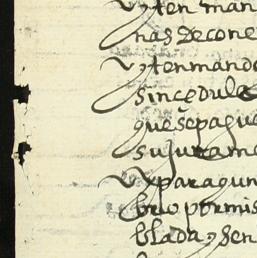 yten man
nas de cone
yten mando
sin çedula
que se pague
su jurame
y para qun
bre por mis
blada, y sen